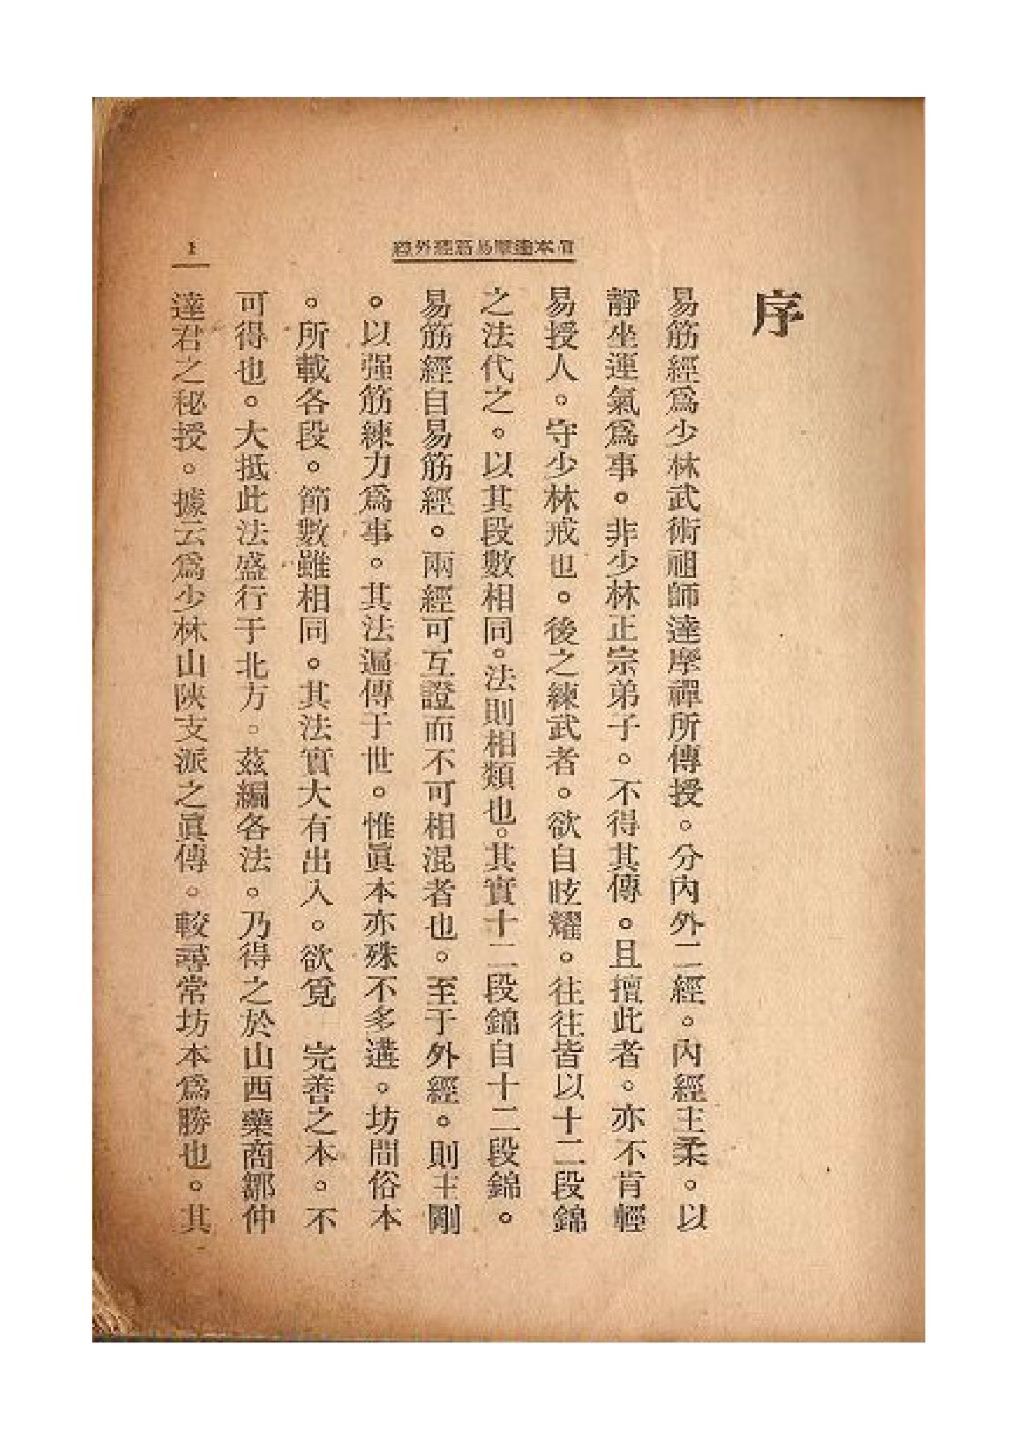 真本達摩易筋經外經
1
序
易筋經爲少林武術祖師達摩禪所傳授。分內外二經。內經主柔。以
靜坐運氣爲事。非少林正宗弟子。不得其傳。且擅此者。亦不肯輕
易授人。守少林戒也。後之練武者。欲自眩耀。往往皆以十二段錦
之法代之。以其段數相同。法則相類也。其實十二段錦自十二段錦。
易筋經自易筋經。兩經可互證而不可相混者也。至于外經。則主剛
。以强筋練力爲事。其法遍傳于世。惟眞本亦殊不多遘。坊間俗本
。所載各段。節數雖相同。其法實大有出入。欲覓 完善之本。不
可得也。大抵此法盛行于北方。茲編各法。乃得之於山西藥商鄒仲
達君之秘授。據云爲少林山陝支派之眞傳。較尋常坊本爲勝也。其